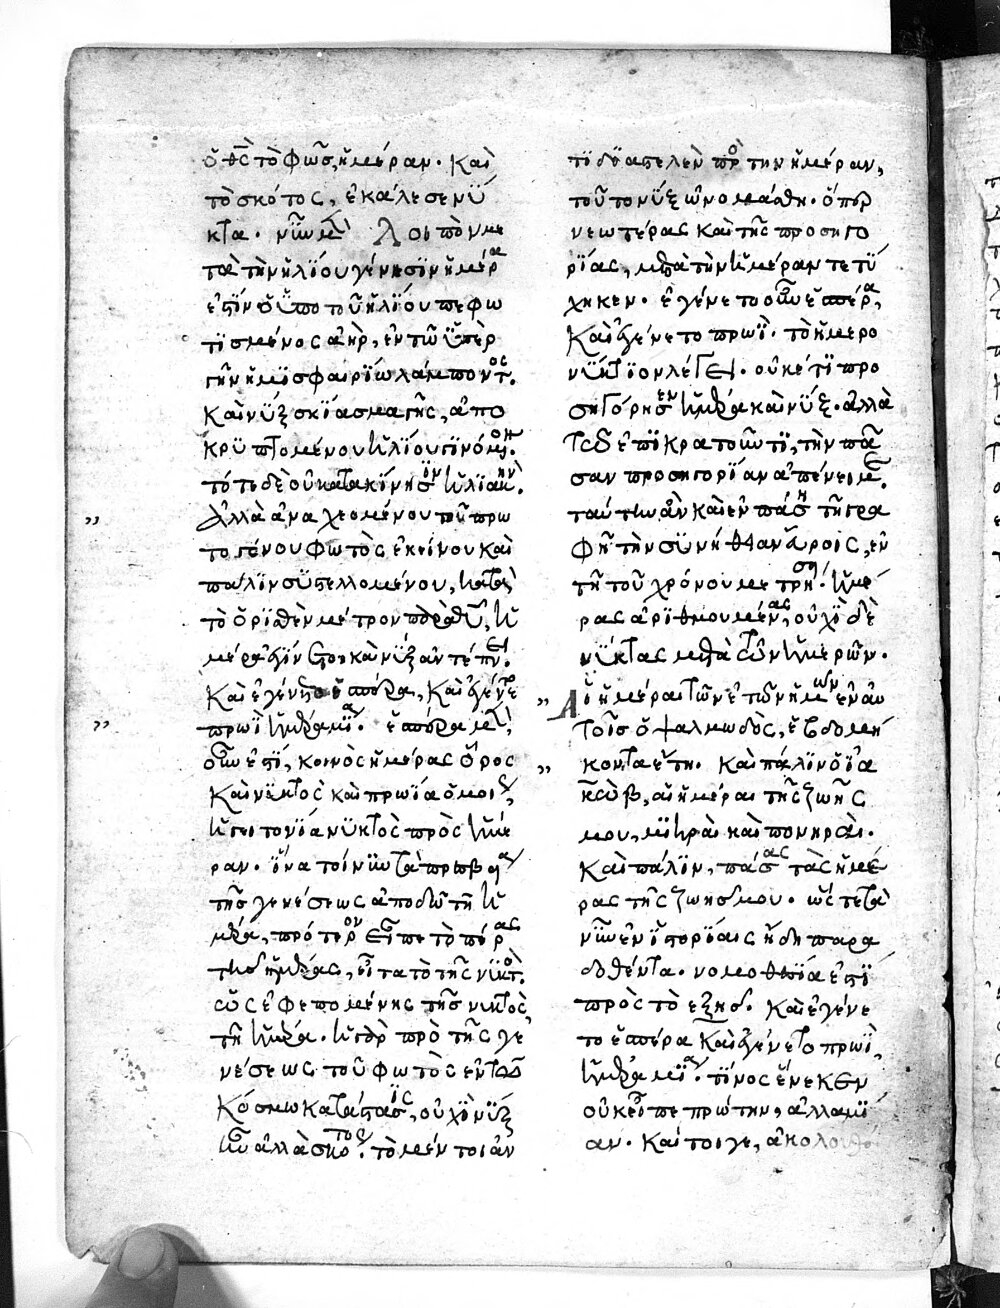 ὁ θς τὸ φῶς, ἡμέραν. καὶ
τὸ σκότος, ἐκάλεσε νύ
κτα. νῦν μὲν λοιπὸν με
τὰ τὴν ἡλίου γένεσιν ἡμέρα
ἐστὶν ὁ ὑπὸ τοῦ ἡλίου πεφω
τισμένος ἀὴρ, ἐν τῶ ὑπὲρ
γῆν ἡμισφαιρίω λάμποντος.
καὶ νὺξ σκίασμα γῆς, ἀπο
κρυπτομένου ἡλίου γινόμενον.
τότε δὲ οὐ κατὰ κίνησιν ἡλιακὴν.
ἀλλὰ ἀναχεομένου τοῦ πρω
τογόνου φωτὸς ἐκείνου καὶ
πάλιν συστελλομένου, κατὰ
τὸ ὁρισθὲν μέτρον παρὰ θυ, ἡ
μέρα ἐγίνετο καὶ νὺξ ἀντεπήει.
καὶ ἐγένετο ἑσπέρα, καὶ ἐγένετο
πρωῒ ἡμέρα μία. ἑσπέρα μὲν
οὖν ἐστι, κοινὸς ἡμέρας ὅρος
καὶ νυκτὸς καὶ πρωΐα ὁμοίως,
ἡ γειτονία νυκτὸς πρὸς ἡμέ
ραν. ἵνα τοίνυν τὰ πρεσβεῖα
τῆς γενέσεως ἀποδῶ τῆ ἡ
μέρα, πρότερον εἶπε τὸ πέρας
τῆς ἡμέρας, εἶτα τὸ τῆς νυκτὸς.
ὡς ἐφεπομένης τῆς νυκτὸς,
τῆ ἡμέρα. ἡ γὰρ πρὸ τῆς γε
νέσεως τοῦ φωτὸς ἐν τῶ
κόσμω κατάστασις, οὐχὶ νὺξ
ἦν ἀλλὰ σκότος. τὸ μέντοι ἀν
τιδιαστελὲν πρὸς τὴν ἡμέραν,
τοῦτο νὺξ ὠνομάσθη. ὅπερ
νεωτέρας καὶ τῆς προσηγο
ρίας, μετὰ τὴν ἡμέραν τετύ
χηκεν. ἐγένετο οὖν ἑσπέρα,
καὶ ἐγένετο πρωΐ. τὸ ἡμερο
νύκτιον λέγει. οὐκέτι προ
σηγόρησεν ἡμέρα καὶ νὺξ. ἀλλὰ
τῶ ἐπικρατοῦντι, τὴν πᾶ
σαν προσηγορίαν ἀπένειμε.
ταύτην ἂν καὶ ἐν πάση τῆ γρα
φῆ τὴν συνήθειαν εὕροις, ἐν
τῆ τοῦ χρόνου μετρήσει. ἡμέ
ρας ἀριθμουμένας, οὐχὶ δὲ
νύκτας μετὰ τῶν ἡμερῶν.
Αἱ ἡμέραι τῶν ἐτῶν ἡμῶν ἐν αὐ
τοῖς ὁ ψαλμωδὸς, ἑβδομή
κοντα ἔτη. καὶ πάλιν ὁ ἰα
κὼβ, αἱ ἡμέραι τῆς ζωῆς
μου, μικραὶ καὶ πονηραὶ.
καὶ πάλιν, πάσας τὰς ἡμέ
ρας τῆς ζωῆς μου. ὥστε τὰ
νῦν ἐν ἱστορίαις ἤδη παρα
δοθέντα. νομοθεσία ἐστὶ
πρὸς τὸ ἑξῆς. καὶ ἐγένε
το ἑσπέρα καὶ ἐγένετο πρωῒ,
ἡμέρα μία. τίνος ἕνεκεν
οὐκ εἶπε πρώτην, ἀλλὰ μί
αν. καίτοιγε, ἀκολουθό